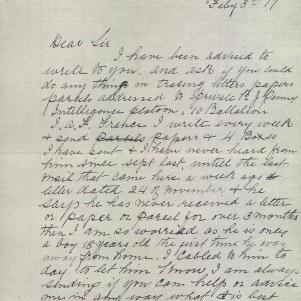 Feby 3rd 17
Dear Sir
I have been advised to
write to you and ask if you could
do any thing in tracing letters papers
parcels addressed to Private R J Penny
Intelligence platon, 10 Battalion
I. A. F. France I write every week
& send Papers & 4 Boxes
I have sent & I have never heard from
him since Sept last untill the last
mail that came here a week ago
letter dated 24 of November & he
says he has never received a letter
or paper or parcel for over 3 months
then I am so worried as he is only
a boy 18 years old the first time he was
away from home. I cabled to him to
day to let him know, I am always
sending if you can help or advice
me in any way what it is best